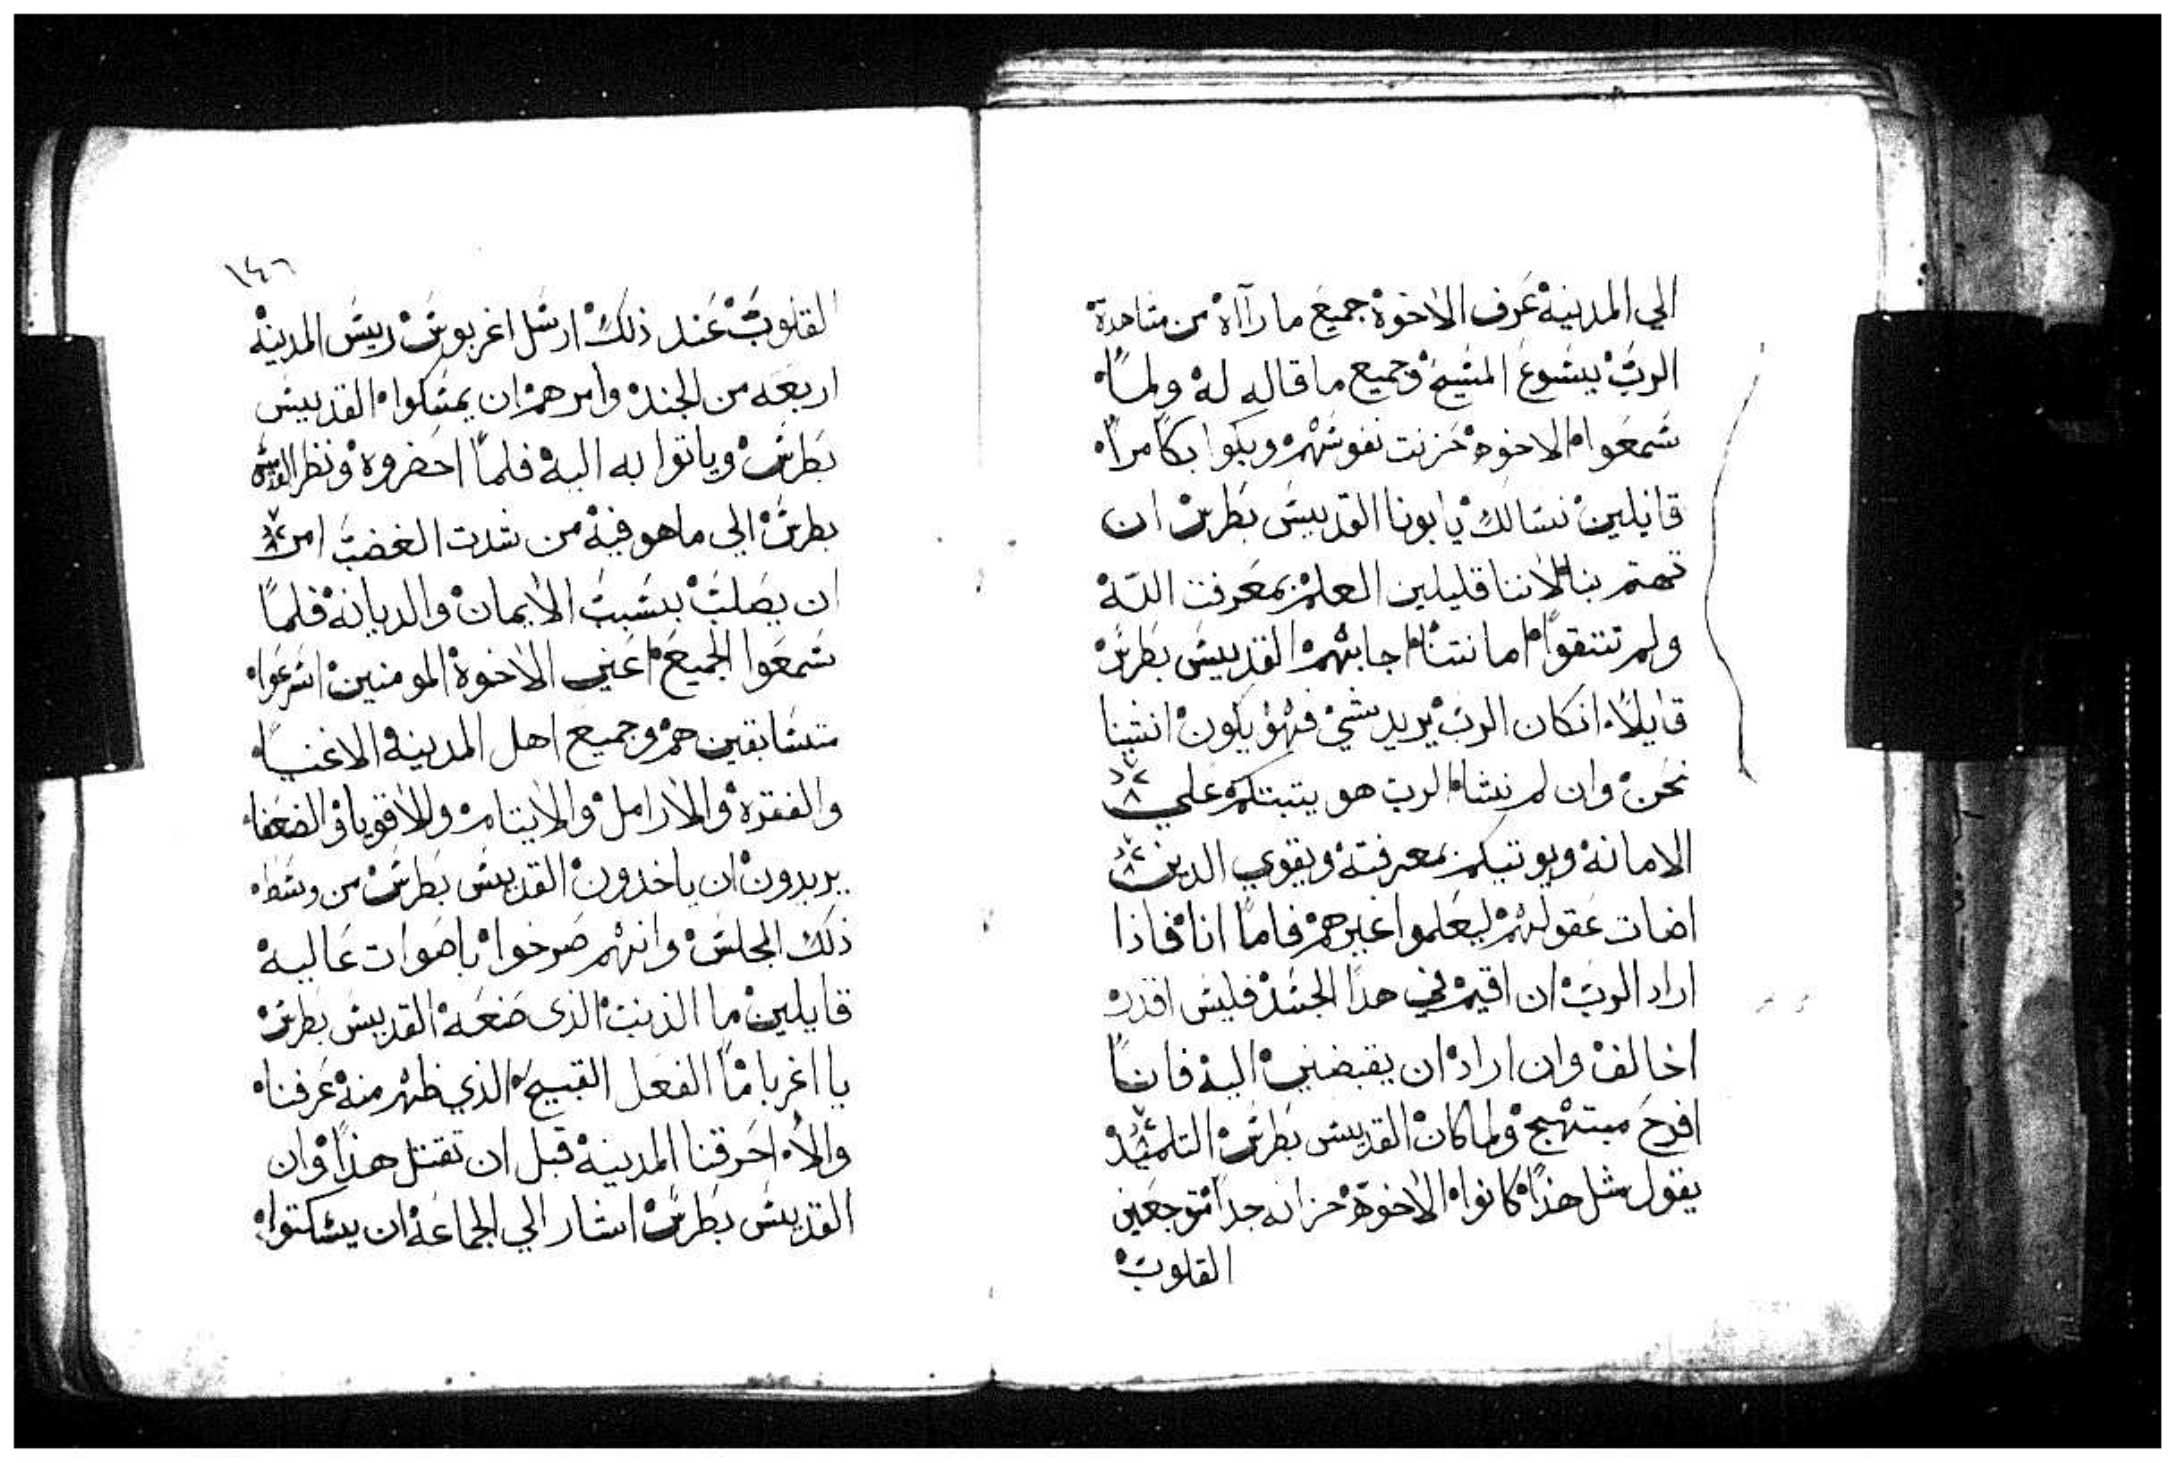 الي المدينة عرف الاخوة جميع ما رآاه من مشاهدة
الرب يسوع المسيح وجميع ما قاله له ولما
سمعوا الاخوة حزنت نفوسهم وبكوا بكا مرا
قايلين نسالك يا بونا القديس بطرس ان
تهتم بنا لاننا قليلين العلم بمعرفت الله
ولم تتقوا امانتنا اجابهم القديس بطرس
قايلا انكان الرب يريد شي فهو يكون انشينا
نحن وان لم نشا الرب هو يتبتكم علي
الامانة ويوتيكم بمعرفته ويقوي الدين
اضات عقولهم ليعلموا غيرهم فاما انا فاذا
اراد الرب ان اقيم في هذا الجسد فليس اقدر
اخالف وان اراد ان يقبضني اليه فانا
افرح مبتهج ولما كان القديس بطرس التلميذ
يقول مثل هذا كانوا الاخوة حزانه جدا متوجعين
القلوب
١٤٦
القلوب عند ذلك ارسل اغربوس رييس المدينة
اربعه من الجند وامرهم ان يمسكوا القديس
بطرس وياتوا به اليه فلما احضروه ونظر القديس
بطرس الي ما هو فيه من شدت الغضب امر
ان يصلب بسبب الايمان والديانة فلما
سمعوا الجميع اعني الاخوة المومنين اسرعوا
متسابقين هم وجميع اهل المدينة الاغنيا
والفقره والارامل والايتام والاقويا والضعفا
يريدون ان ياخدون القديس بطرس من وسط
ذلك المجلس وانهم صرخوا باصوات عاليه
قايلين ما الذنب الذي صنعه القديس بطرس
يا اغربا ما الفعل القبيح الذي ظهر منه عرفنا
والا احرقنا المدينة قبل ان تقتل هذا وان
القديس بطرس اشار الي الجماعة ان يسكتوا